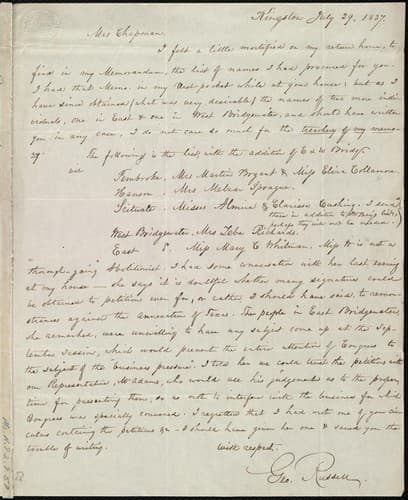 Kingston July 29, 1837.
Mrs Chapman,
I felt a little mortified on my return home, to
find in my Memorandum, the list of names I had procured for you.
I had that Memo. in my Vest pocket while at your house; but as I
have since obtained (what was very desirable) the names of two more indi-
viduals, one in East & one in West Bridgewater, and should have written
you in any case, I do not care so much for the treachery of my memo-
ry.
The following is the list, with the addition of E & W Bridgr.
Pembroke, Mrs Martin Bryant & Miss Eliza Collamore.
Hanson. Mrs Melzar Sprague.
Scituate. Misses Almira & Clarissa Cushing. I send
these in addition to
perhaps they may not be
West Bridgewater, Mrs Zeba Richards.
East B. Miss Mary E Whitman. Miss W is not a
thorough going Abolitionist. I had some conversation with her last evening
at my house — she says it is doubtful whether many signatures could
be obtained to petitions even for, or rather I should have said, to remon-
strances against the annexation of Texas. The people in East Bridgewater,
she remarked, were unwilling to have any subject come up at the Sep-
tember session, which would prevent the entire attention of Congress to
the subject of the "business pressure". I told her we could trust the petitions with
our Representative, Mr Adams, who would use his judgement as to the proper
time for presenting them, so as not to interfere with the business for which
Congress was specially convened. I regretted that I had not one of your cir-
culars containing the petitions &c — I should have given her one & saved you the
trouble of writing.
With respect.
Geo. Russell.